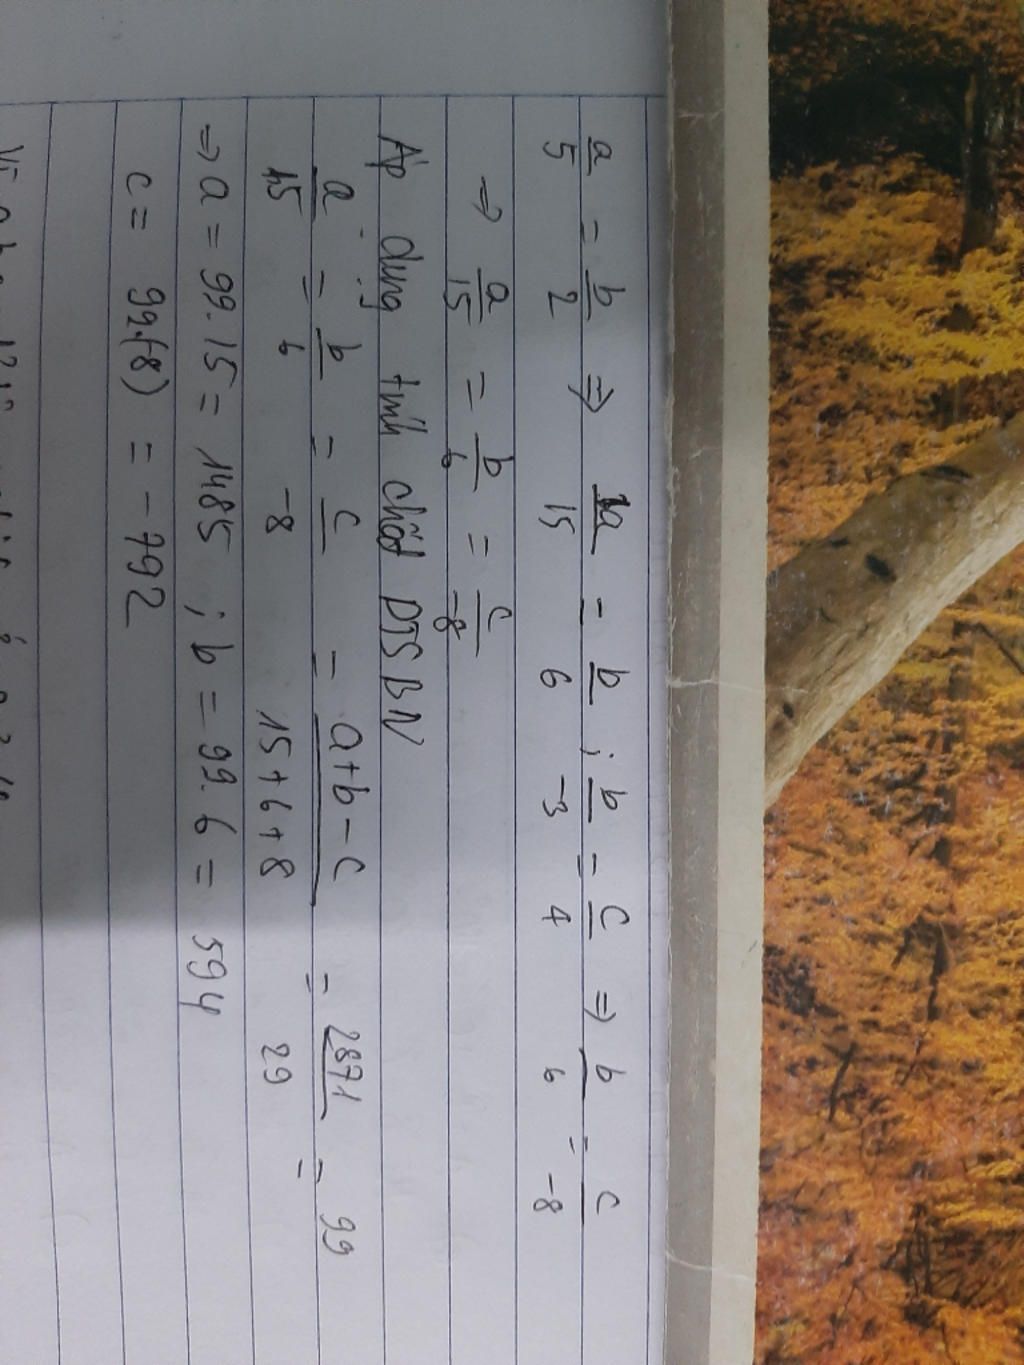 a/5 = b/2 => a/15 = b/6 ; b/-3 = c/4 => b/6 = c/-8
=> a/15 = b/6 = c/-8
Áp dụng tính chất DTSBN
a/15 = b/6 = c/-8 = a+b-c/15+6+8 = 2871/29 = 99
=> a = 99.15 = 1485 ; b = 99.6 = 594
c = 99.(-8) = -792